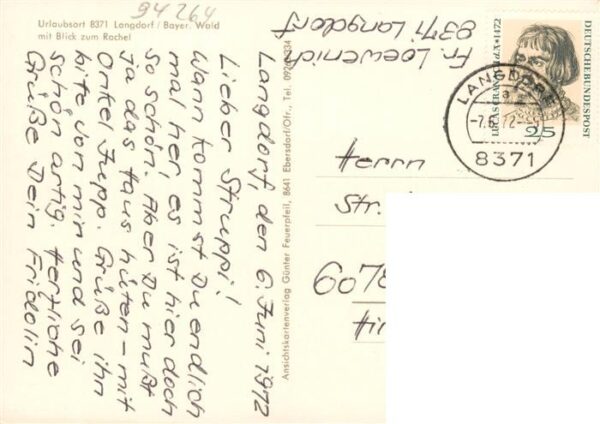 94264
Urlaubsort 8371 Langdorf / Bayer. Wald
mit Blick zum Rachel
Langdorf, den 6. Juni 1972
Lieber Struppi!
Wann kommst Du endlich
mal her, es ist hier doch
so schön. Aber Du mußt
ja das Haus hüten - mit
Onkel Jupp. Grüße ihn
bitte von mir und sei
schön artig. Herzliche
Grüße Dein Fridolin
Ansichtskartenverlag Günter Feuerpfeil, 8641 Ebersdorf/Ofr., Tel.
Fr. Loewenich
8371 Langdorf
LUCAS CRANACH d.Ä. * 1472
DEUTSCHE BUNDESPOST
25
LANGDORF
a
8371
Herrn
Str.
6078